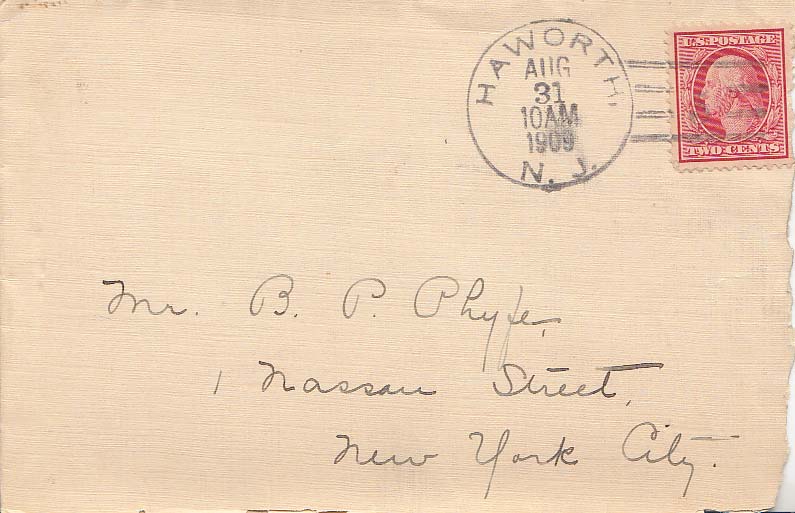 HAWORTH,
AUG
31
10AM
1909
N. J.
U.S. POSTAGE
TWO CENTS
Mr. B. P. Phyfe,
1 Nassau Street,
New York City.